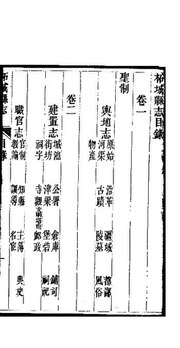 柘城縣志目錄
卷一
聖制
輿地志
原始 沿革 疆域
河渠 古蹟 陵墓 風俗
物產
卷二
建置志
城池 公署 倉庫 鋪司
街坊 津梁 堡砦
祠宇 寺觀
職官志
官制 知縣 主簿 典史
教諭 訓導 名宦
柘城縣志 目錄